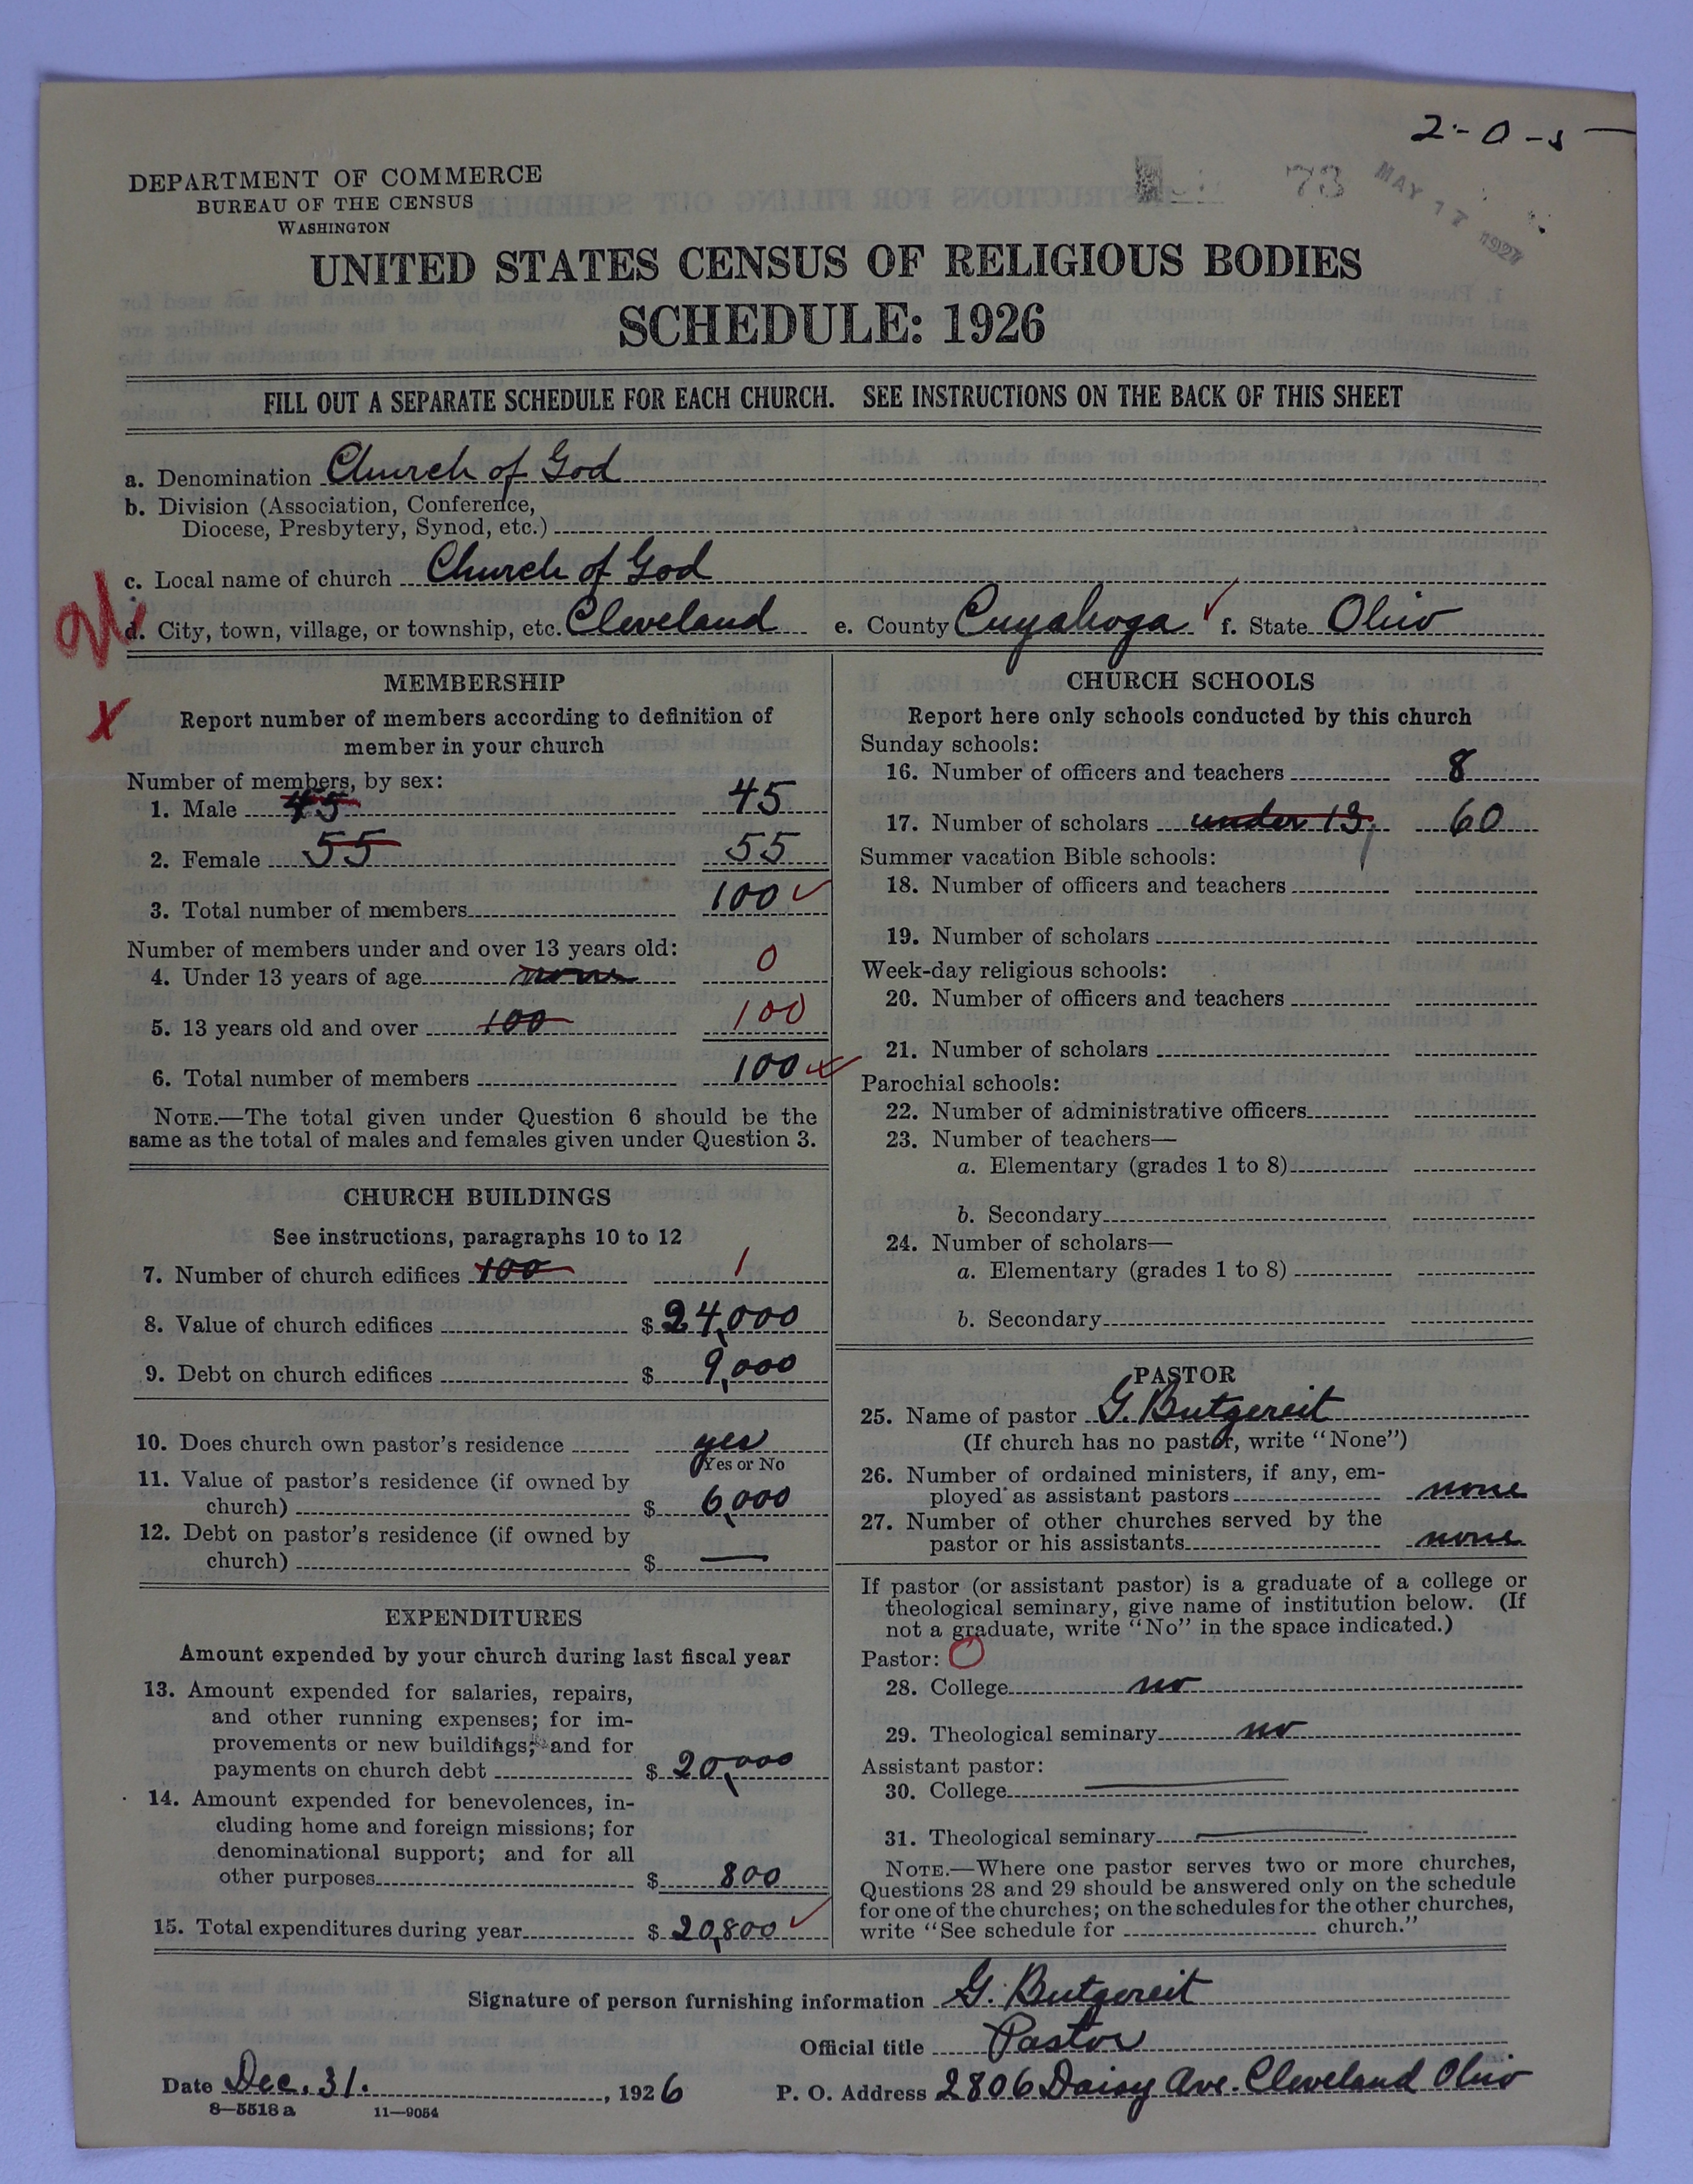 2-0-5
73 MAY 17 1927
DEPARTMENT OF COMMERCE
BUREAU OF THE CENSUS
WASHINGTON
UNITED STATES CENSUS OF RELIGIOUS BODIES
SCHEDULE: 1926
FILL OUT A SEPARATE SCHEDULE FOR EACH CHURCH. SEE INSTRUCTIONS ON THE BACK OF THIS SHEET
a. Denomination Church of God
b. Division (Association, Conference,
Diocese, Presbytery, Synod, etc.)
c. Local name of church Church of God
d. City, town, village, or township, etc. Cleveland e. County Cuyahoga f. State Ohio
MEMBERSHIP
X Report number of members according to definition of
member in your church
Number of members, by sex:
1. Male 45 45
2. Female 55 55
3. Total number of members 100
Number of members under and over 13 years old:
4. Under 13 years of age none 0
5. 13 years old and over 100 100
6. Total number of members 100
NOTE.—The total given under Question 6 should be the
same as the total of males and females given under Question 3.
CHURCH BUILDINGS
See instructions, paragraphs 10 to 12
7. Number of church edifices 100 1
8. Value of church edifices $ 24,000
9. Debt on church edifices $ 9,000
10. Does church own pastor's residence yes
Yes or No
11. Value of pastor's residence (if owned by
church) $ 6,000
12. Debt on pastor's residence (if owned by
church) $ —
EXPENDITURES
Amount expended by your church during last fiscal year
13. Amount expended for salaries, repairs,
and other running expenses; for im-
provements or new buildings; and for
payments on church debt $ 20,000
14. Amount expended for benevolences, in-
cluding home and foreign missions; for
denominational support; and for all
other purposes $ 800
15. Total expenditures during year $ 20,800
CHURCH SCHOOLS
Report here only schools conducted by this church
Sunday schools:
16. Number of officers and teachers 8
17. Number of scholars under 13, 60
Summer vacation Bible schools:
18. Number of officers and teachers
19. Number of scholars
Week-day religious schools:
20. Number of officers and teachers
21. Number of scholars
Parochial schools:
22. Number of administrative officers
23. Number of teachers—
a. Elementary (grades 1 to 8)
b. Secondary
24. Number of scholars—
a. Elementary (grades 1 to 8)
b. Secondary
PASTOR
25. Name of pastor G. Butgereit
(If church has no pastor, write "None")
26. Number of ordained ministers, if any, em-
ployed as assistant pastors none
27. Number of other churches served by the
pastor or his assistants none
If pastor (or assistant pastor) is a graduate of a college or
theological seminary, give name of institution below. (If
not a graduate, write "No" in the space indicated.)
Pastor: O
28. College no
29. Theological seminary no
Assistant pastor:
30. College —
31. Theological seminary —
NOTE.—Where one pastor serves two or more churches,
Questions 28 and 29 should be answered only on the schedule
for one of the churches; on the schedules for the other churches,
write "See schedule for church."
Signature of person furnishing information G. Butgereit
Official title Pastor
Date Dec. 31. , 1926 P. O. Address 2806 Daisy Ave. Cleveland Ohio
8—5518 a 11—9054